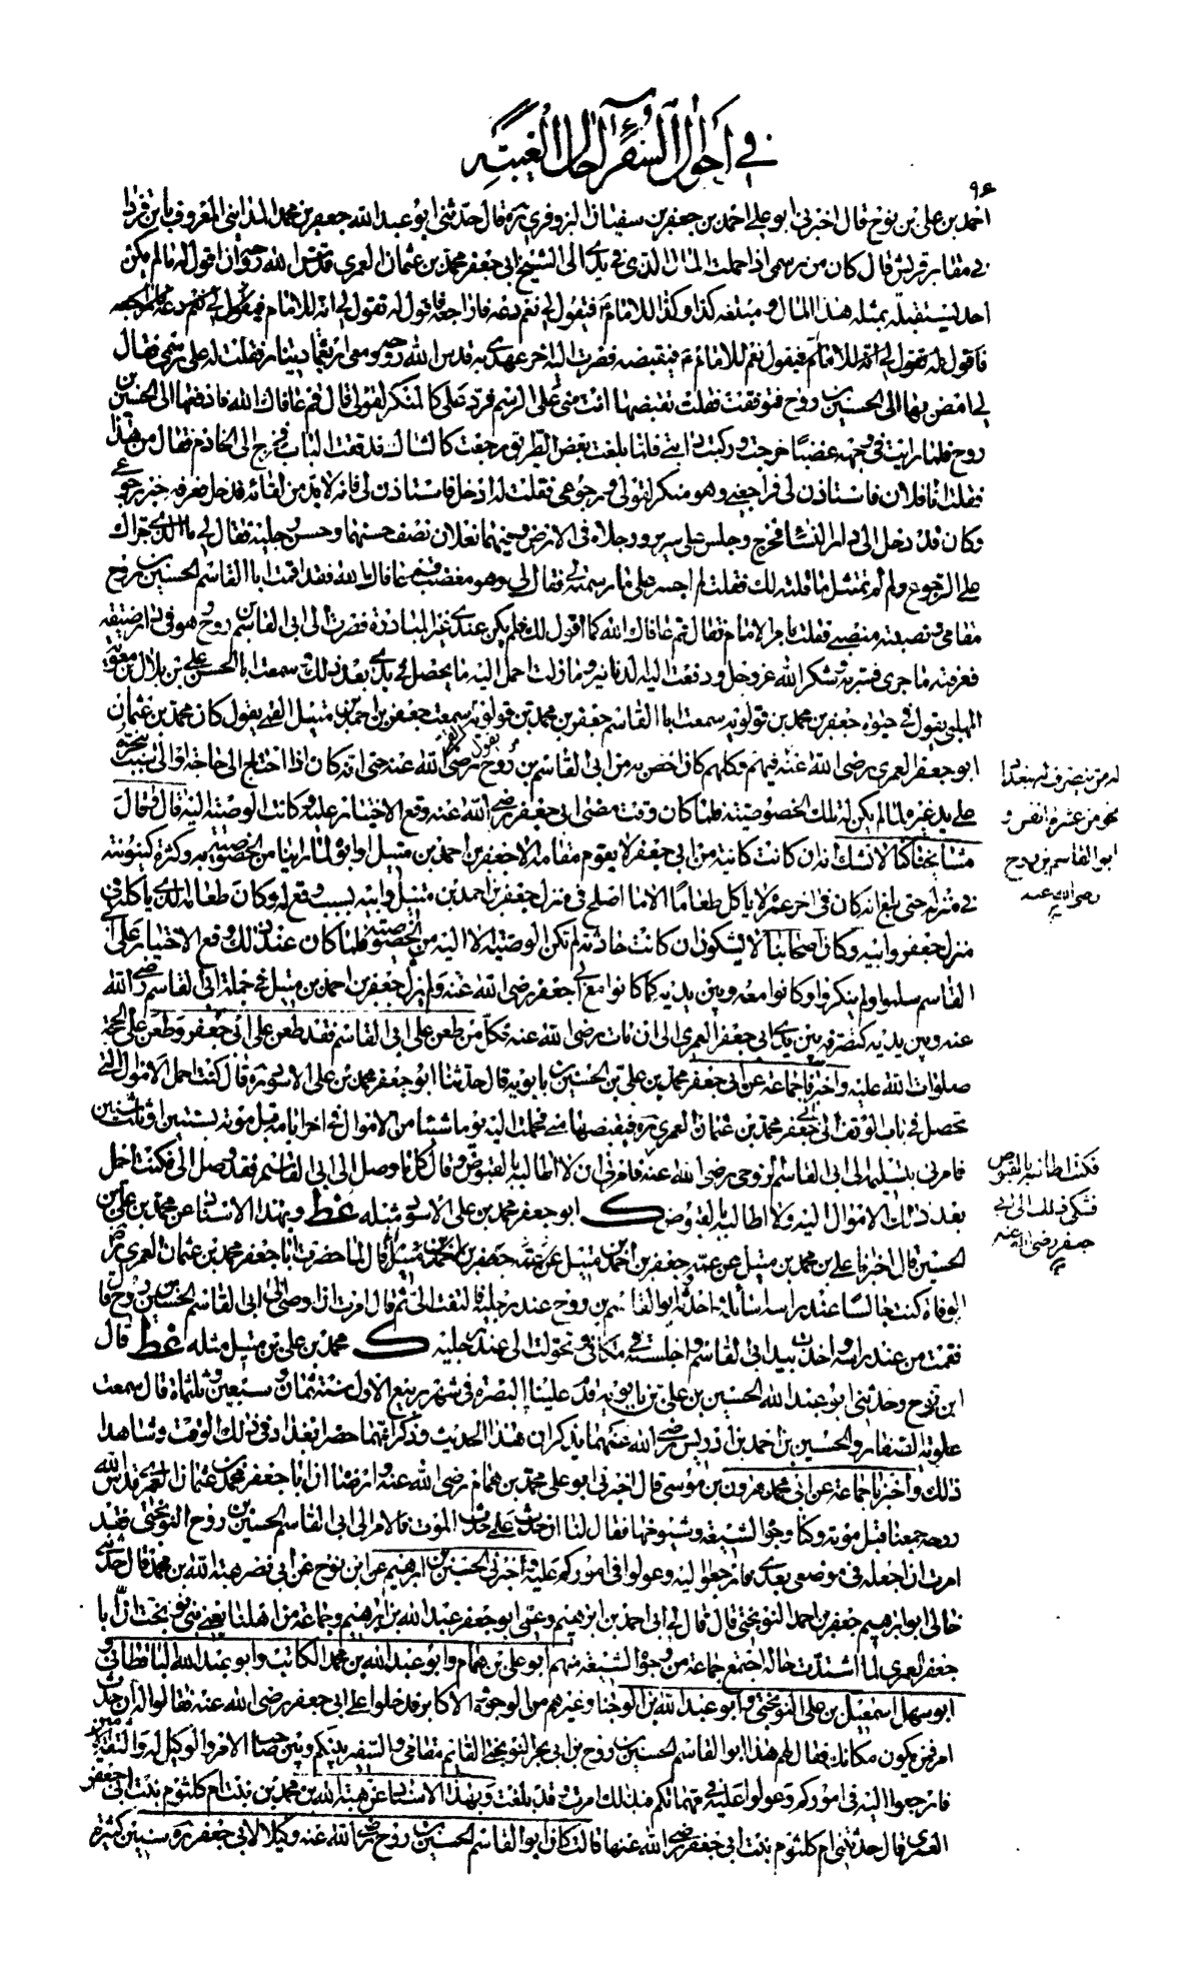 في احوال السفراء حال الغيبة
٩٤
احمد بن علي بن نوح قال اخبرني ابو علي احمد بن جعفر بن سفيان البزوفري ره قال حدثني ابو عبد الله جعفر بن محمد المدائني المعروف بابن قزدا
في مقابر قريش قال كان من رسمي اذا حملت المال الذي في يدي الى الشيخ ابي جعفر محمد بن عثمان العمري قدس الله روحه ان اقول له ما لم يكن
احد يستقبله بمثله هذا المال و مبلغه كذا و كذا للامام ع فيقول لي نعم دعه فاراجعه فاقول له تقول لي انه للامام فيقول لي نعم
فاقول له تقول لي انه للامام فيقول نعم للامام ع فيقبضه فصرت اليه اخر عهدي به قدس الله روحه و معي اربعمائة دينار فقلت له على رسمي فقال
لي امض بها الى الحسين بن روح فتوقفت فقلت تقبضها انت مني على الرسم فرد علي كالمنكر لقولي قال قم عافاك الله فادفعها الى الحسين بن
روح فلما رايت في وجهه غضبا خرجت و ركبت دابتي فلما بلغت بعض الطريق رجعت كالشاك فدققت الباب فخرج الي الخادم فقال من هذا
فقلت انا فلان فاستاذن لي فراجعني و هو منكر لقولي و رجوعي فقلت له ادخل فاستاذن لي فانه لا بد من لقائه فدخل فعرفه خبر رجوعي
و كان قد دخل الى دار النساء فخرج و جلس على سرير و رجلاه في الارض و فيهما نعلان نصف حسنهما و حسن رجليه فقال لي ما الذي جراك
على الرجوع و لم لم تمتثل ما قلته لك فقلت لم اجسر على ما رسمته لي فقال لي و هو مغضب قم عافاك الله فقد اقمت ابا القاسم الحسين بن روح
مقامي و نصبته منصبي فقلت بامر الامام فقال قم عافاك الله كما اقول لك فلم يكن عندي غير المبادرة فصرت الى ابي القاسم بن روح و هو في دار ضيقة
فعرفته ما جرى فسر به و شكر الله عز و جل و دفعت اليه الدنانير و ما زلت احمل اليه ما يحصل في يدي بعد ذلك و سمعت ابا الحسن علي بن بلال بن معوية
المهلبي يقول في حيوة جعفر بن محمد بن قولويه سمعت ابا القاسم جعفر بن محمد بن قولويه يقول سمعت جعفر بن احمد بن متيل القمي يقول كان محمد بن عثمان
ابو جعفر العمري رضي الله عنه فيهم و كلهم كان اخص به من ابي القاسم بن روح رضي الله عنه حتى انه كان اذا احتاج الى حاجة او الى سبب ينجزه
على يد غيره لما لم يكن له تلك الخصوصية فلما كان وقت مضي ابي جعفر رضي الله عنه وقع الاختيار عليه و كانت الوصية اليه قال و قال
مشايخنا كنا لا نشك انه ان كانت كائنة من ابي جعفر لا يقوم مقامه الا جعفر بن احمد بن متيل او ابوه لما راينا من الخصوصية به و كثرة كينونته
في منزله حتى بلغ انه كان في اخر عمره لا ياكل طعاما الا ما اصلح في منزل جعفر بن احمد بن متيل و ابيه بسبب وقع له و كان طعامه الذي ياكله في
منزل جعفر و ابيه و كان اصحابنا لا يشكون ان كانت حادثة لم تكن الوصية الا اليه من الخصوصية فلما كان عند ذلك وقع الاختيار على ابي
القاسم سلموا و لم ينكروا و كانوا معه و بين يديه كما كانوا مع ابي جعفر رضي الله عنه و لم يزل جعفر بن احمد بن متيل في جملة ابي القاسم رضي الله
عنه و بين يديه كتصرفه بين يدي ابي جعفر العمري الى ان مات رضي الله عنه فكل من طعن على ابي القاسم فقد طعن على ابي جعفر و طعن على الحجة
صلوات الله عليه و اخبرنا جماعة عن ابي جعفر محمد بن علي بن الحسين بن بابويه قال حدثنا ابو جعفر محمد بن علي الاسود ره قال كنت احمل الاموال التي
تحصل في باب الوقف الى ابي جعفر محمد بن عثمان العمري ره فيقبضها مني فحملت اليه يوما شيئا من الاموال في اخر ايامه قبل موته بسنتين او ثلث سنين
فامرني بتسليمه الى ابي القاسم الروحي رضي الله عنه فامرني ان لا اطالبه بالقبوض و قال كل ما وصل الى ابي القاسم فقد وصل الي فكنت احمل
بعد ذلك الاموال اليه و لا اطالبه بالقبوض ك ابو جعفر محمد بن علي الاسود مثله غط و بهذا الاسناد عن محمد بن علي بن
الحسين قال اخبرنا علي بن محمد بن متيل عن عمه جعفر بن احمد بن متيل قال لما حضرت ابا جعفر محمد بن عثمان العمري ره
الوفاة كنت جالسا عند راسه اسائله و احدثه و ابو القاسم بن روح عند رجليه فالتفت الي ثم قال امرت ان اوصي الى ابي القاسم الحسين بن روح قال
فقمت من عند راسه و اخذت بيد ابي القاسم و اجلسته في مكاني و تحولت الى عند رجليه ك محمد بن علي بن متيل مثله غط قال
ابن نوح و حدثني ابو عبد الله الحسين بن علي بن بابويه قدم علينا البصرة في شهر ربيع الاول سنة ثمان و سبعين و ثلثمائة قال سمعت
علوية الصفار و الحسين بن احمد بن ادريس رضي الله عنهما يذكران هذا الحديث و ذكرا انهما حضرا بغداد في ذلك الوقت و شاهدا
ذلك و اخبرنا جماعة عن ابي محمد هرون بن موسى قال اخبرني ابو علي محمد بن همام رضي الله عنه و ارضاه ان ابا جعفر محمد بن عثمان العمري قدس الله
روحه جمعنا قبل موته و كنا وجوه الشيعة و شيوخها فقال لنا ان حدث علي حدث الموت فالامر الى ابي القاسم الحسين بن روح النوبختي فقد
امرت ان اجعله في موضعي بعدي فارجعوا اليه و عولوا في اموركم عليه و اخبرني الحسين بن ابرهيم عن ابن نوح عن ابي نصر هبة الله بن محمد قال حدثني
خالي ابو ابرهيم جعفر بن احمد النوبختي قال قال لي ابي احمد بن ابرهيم و عمي ابو جعفر عبد الله بن ابرهيم و جماعة من اهلنا يعني بني نوبخت ان ابا
جعفر العمري لما اشتدت حاله اجتمع جماعة من وجوه الشيعة منهم ابو علي بن همام و ابو عبد الله بن محمد الكاتب و ابو عبد الله الباقطاني و
ابو سهل اسمعيل بن علي النوبختي و ابو عبد الله بن الوجنا و غيرهم من الوجوه و الاكابر فدخلوا على ابي جعفر رضي الله عنه فقالوا له ان حدث
امر فمن يكون مكانك فقال لهم هذا ابو القاسم الحسين بن روح بن ابي بحر النوبختي القائم مقامي و السفير بينكم و بين صاحب الامر و الوكيل له و الثقة الامين
فارجعوا اليه في اموركم و عولوا عليه في مهماتكم فبذلك امرت و قد بلغت و بهذا الاسناد عن هبة الله بن محمد بن بنت ام كلثوم بنت ابي جعفر
العمري قال حدثتني ام كلثوم بنت ابي جعفر رضي الله عنها قالت كان ابو القاسم الحسين بن روح رضي الله عنه وكيلا لابي جعفر ره سنين كثيرة
له من يتصرف له ببغداد
نحو من عشرة انفس و
ابو القاسم بن روح
رضي الله عنه
فكنت اطالبه بالقبوض
فشكى ذلك الى ابي
جعفر رضي الله عنه